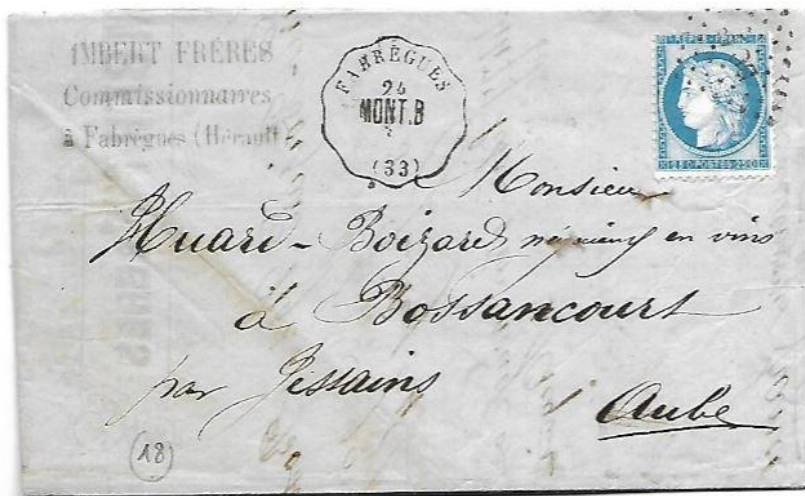 IMBERT FRÈRES
Commissionnaires
à Fabrègues (Hérault)
FABRÈGUES
24
MONT.B
(33)
REPUB. FRANC.
25 C. POSTES 25 C.
Monsieur
Huard-Boizard négociant en vins
à Bossancourt
par Jessains
Aube
18